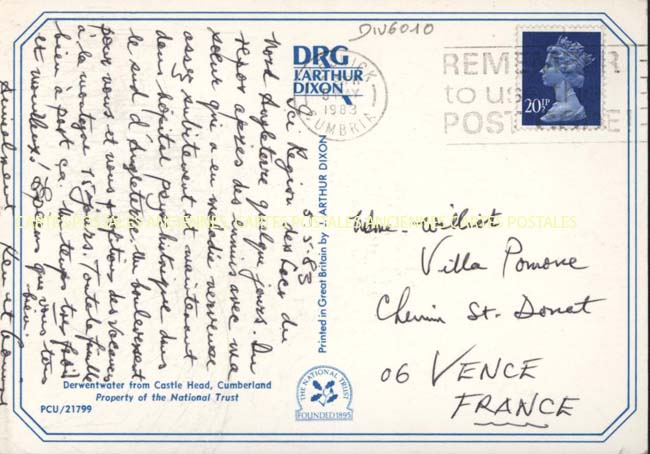 DIV6010
5-83
Ici Region des Lacs du
Nord Angleterre quelque jours. Du
repos après des ennuis avec ma
soeur qui a eu maladie nerveuse
assez subitement et maintenant
dans hôpital psychiatrique dans
le sud d'Angleterre. Un boulversant
pour vous et nous des vacances
à la montagne 15 jours. Toute la famille
bien à part ça. Un temps très froid
et mouilleux! Espérons que vous tous
bien.
Amicalement Ken et
DRG
J.ARTHUR
DIXON
Printed in Great Britain by J. ARTHUR DIXON
KESWICK
1983
CUMBRIA
REMEMBER
to use
POSTCODE!
20½P
CARTES POSTALES ANCIENNES CARTES POSTALES ANCIENNES CARTES POSTALES
Mme - Wilmot
Villa Pomone
Chemin St. Donat
06 VENCE
FRANCE
Derwentwater from Castle Head, Cumberland
Property of the National Trust
PCU/21799
THE NATIONAL TRUST
FOUNDED 1895